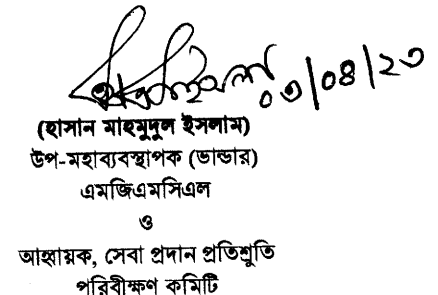 ০৩/০৪/২৩
(হাসান মাহমুদুল ইসলাম)
উপ-মহাব্যবস্থাপক (ভান্ডার)
এমজিএমসিএল
ও
আহ্বায়ক, সেবা প্রদান প্রতিশ্রুতি
পরিবীক্ষণ কমিটি